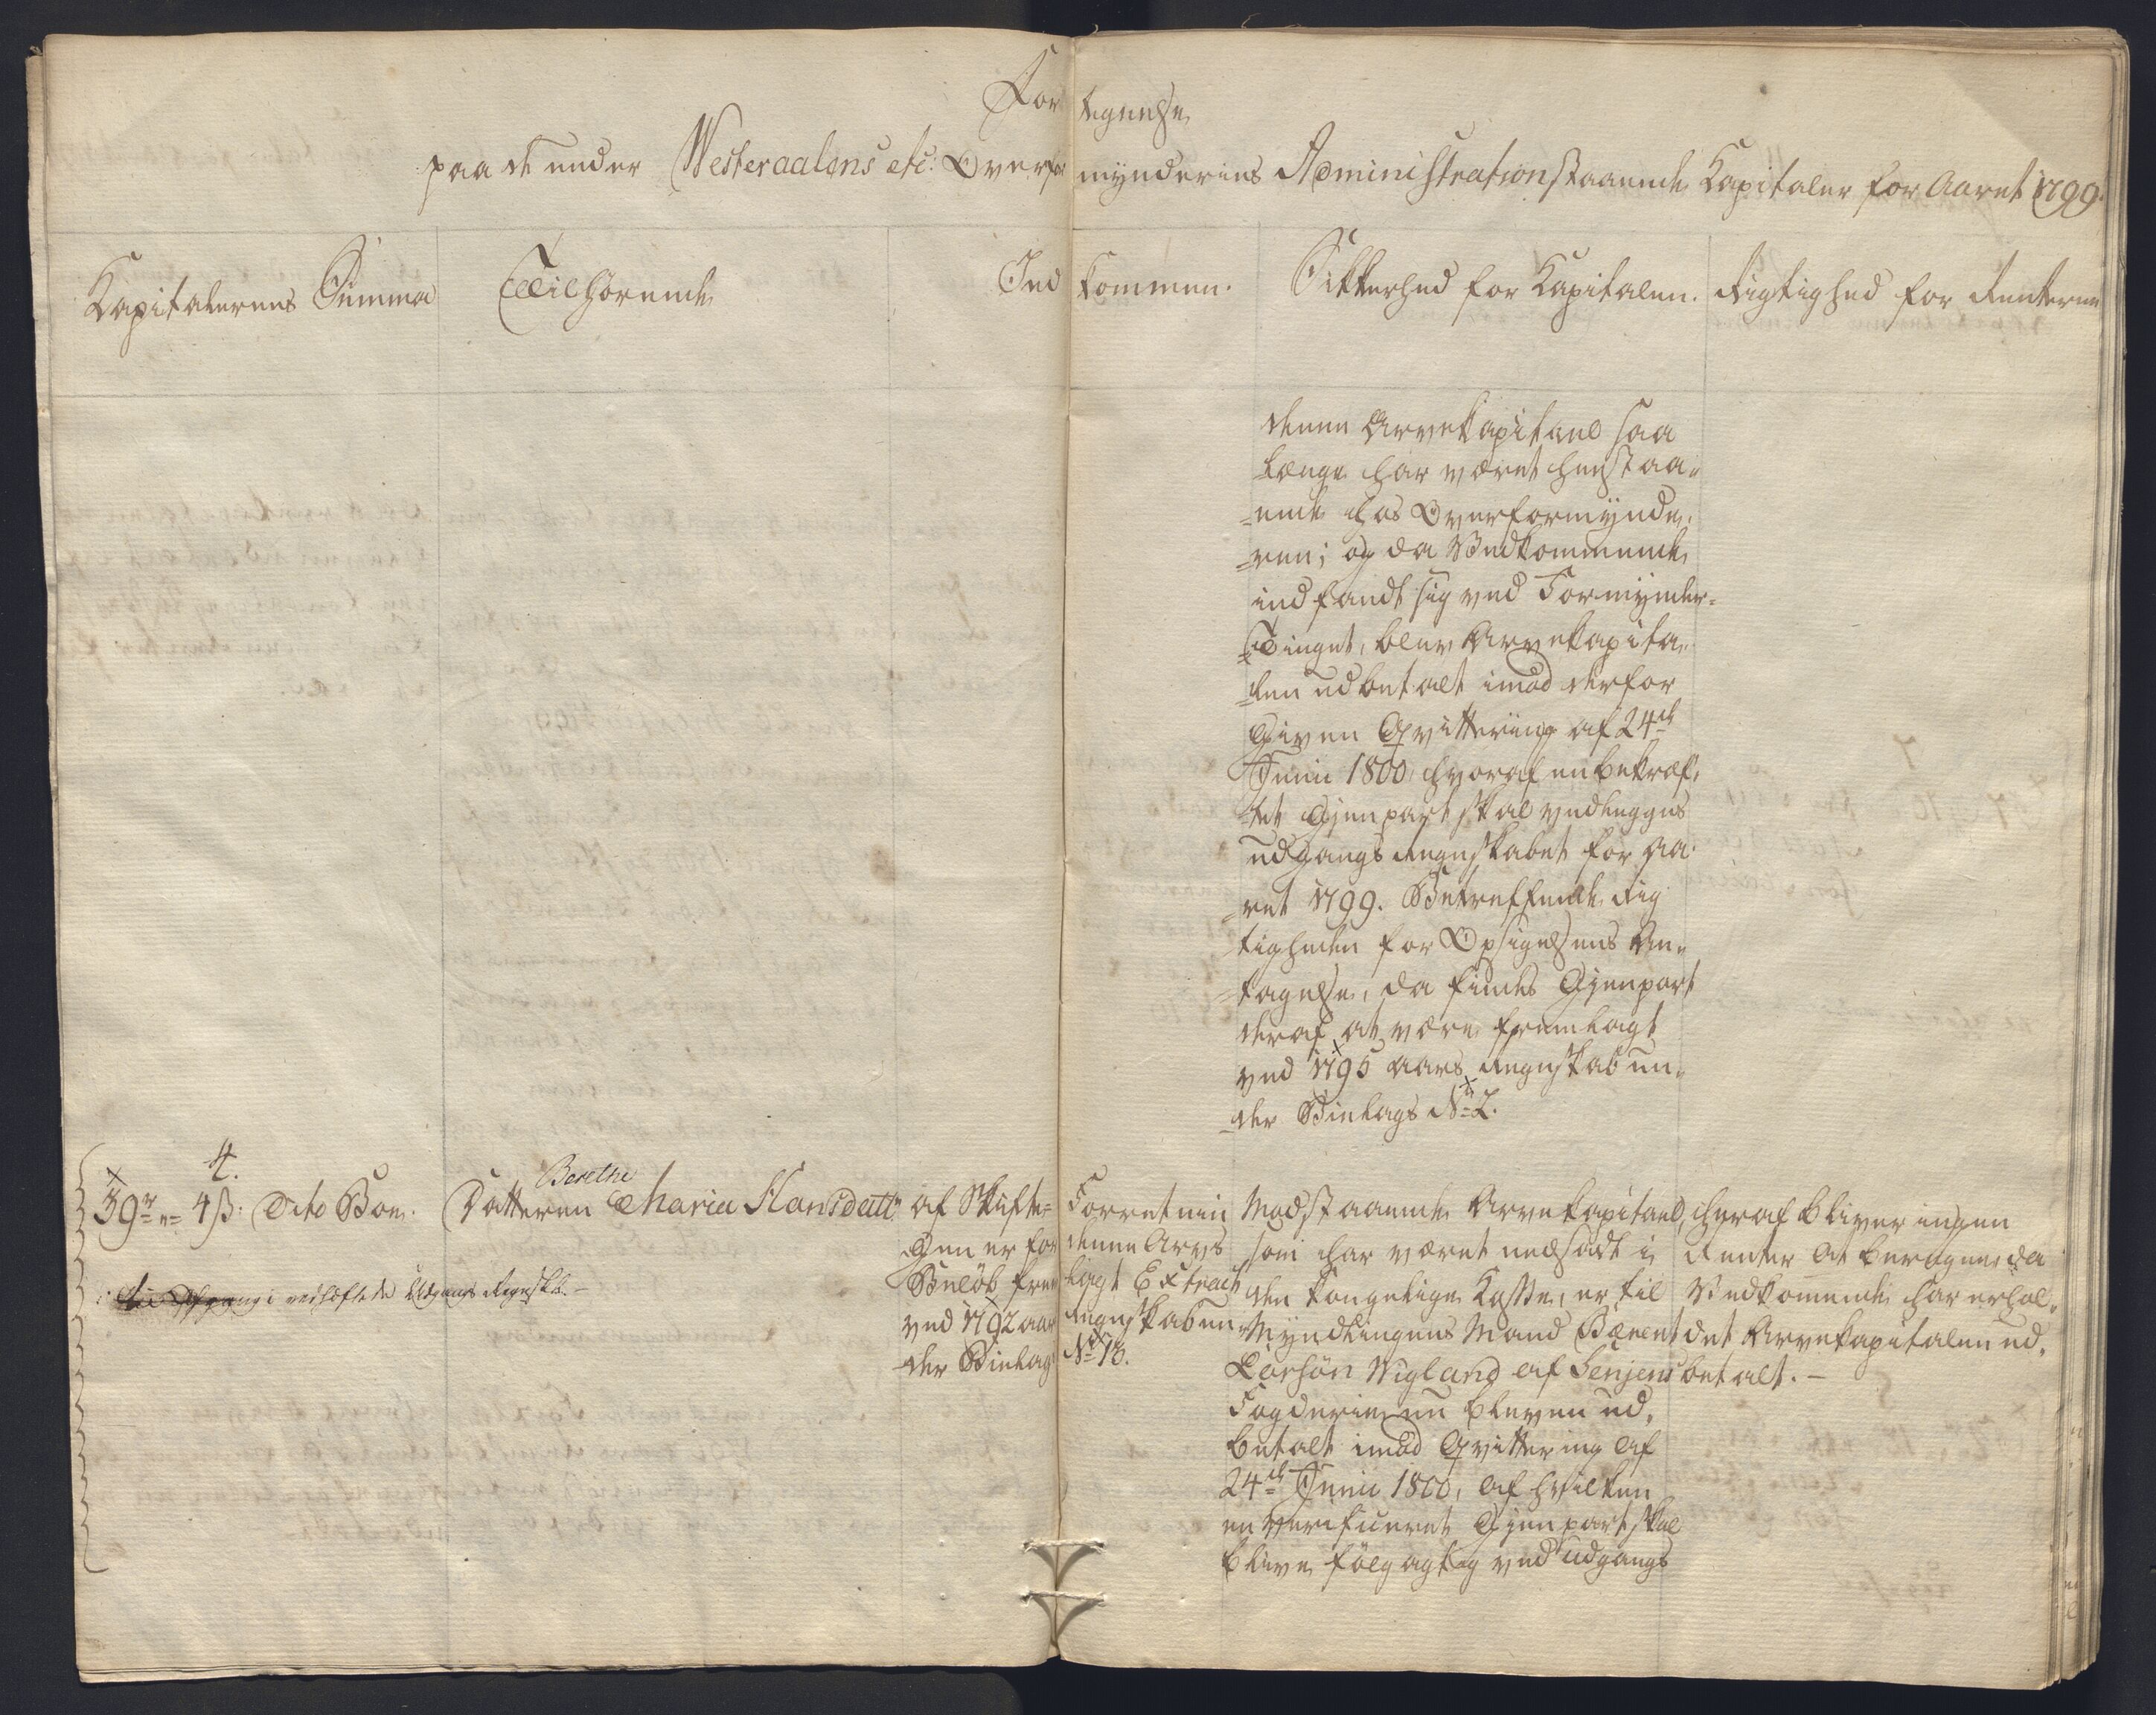 Fortegnelse
paa de under Westeraalens etc: Overformynderies Administration staaende Kapitaler for Aaret 1799.
Kapitalernes Summa
Tilhørende
Indkommen.
Sikkerhed for Kapitalen.
Rigtighed for Renterne
denne Arvekapitael saa
længe har været henstaa-
-ende hos Overformynde-
-ren; og da Vedkommende
indfandt sig ved Formynder-
-Tinget, blev Arvekapita-
-len udbetalt imod derfor
Given Qvittering af 24de
Junii 1800, hvoraf en bekræf-
-tet Gjenpart skal vedlegges
udgangs Regnskabet for Aa-
-ret 1799. Betreffende Rig-
tigheden for Opsigelsens An-
-tagelse, da findes Gjenpart
deraf at være fremlagt
ved 1795 aars Regnskab un-
-der Bielags No 2.
4.
39r „ 4ß. Dito Boe.
i vedhæftede Udgangs Regnskb. -
Berethe
Datteren Maria Hansdattr
af Skifte-Forretnin
Gen er for denne Arvs
Beløb fremlagt Extract
ved 1792 aars Regnskab un-
-der Bielag No 13.
Modstaaende Arvekapitael,
som har været nedsadt i
den Kongelige Kasse, er til
Myndlingens Mand Bærent
Larsøn Wigland af Senjens
Fogderie nu bleven ud-
betalt imod Qvittering af
24de Junii 1800, af hvilken
en verificeret Gjenpart skal
blive følgagtig ved Udgangs
heraf bliver ingen
Renter at beregne, da
Vedkommende har erhol-
det Arvekapitalen ud-
betalt. -